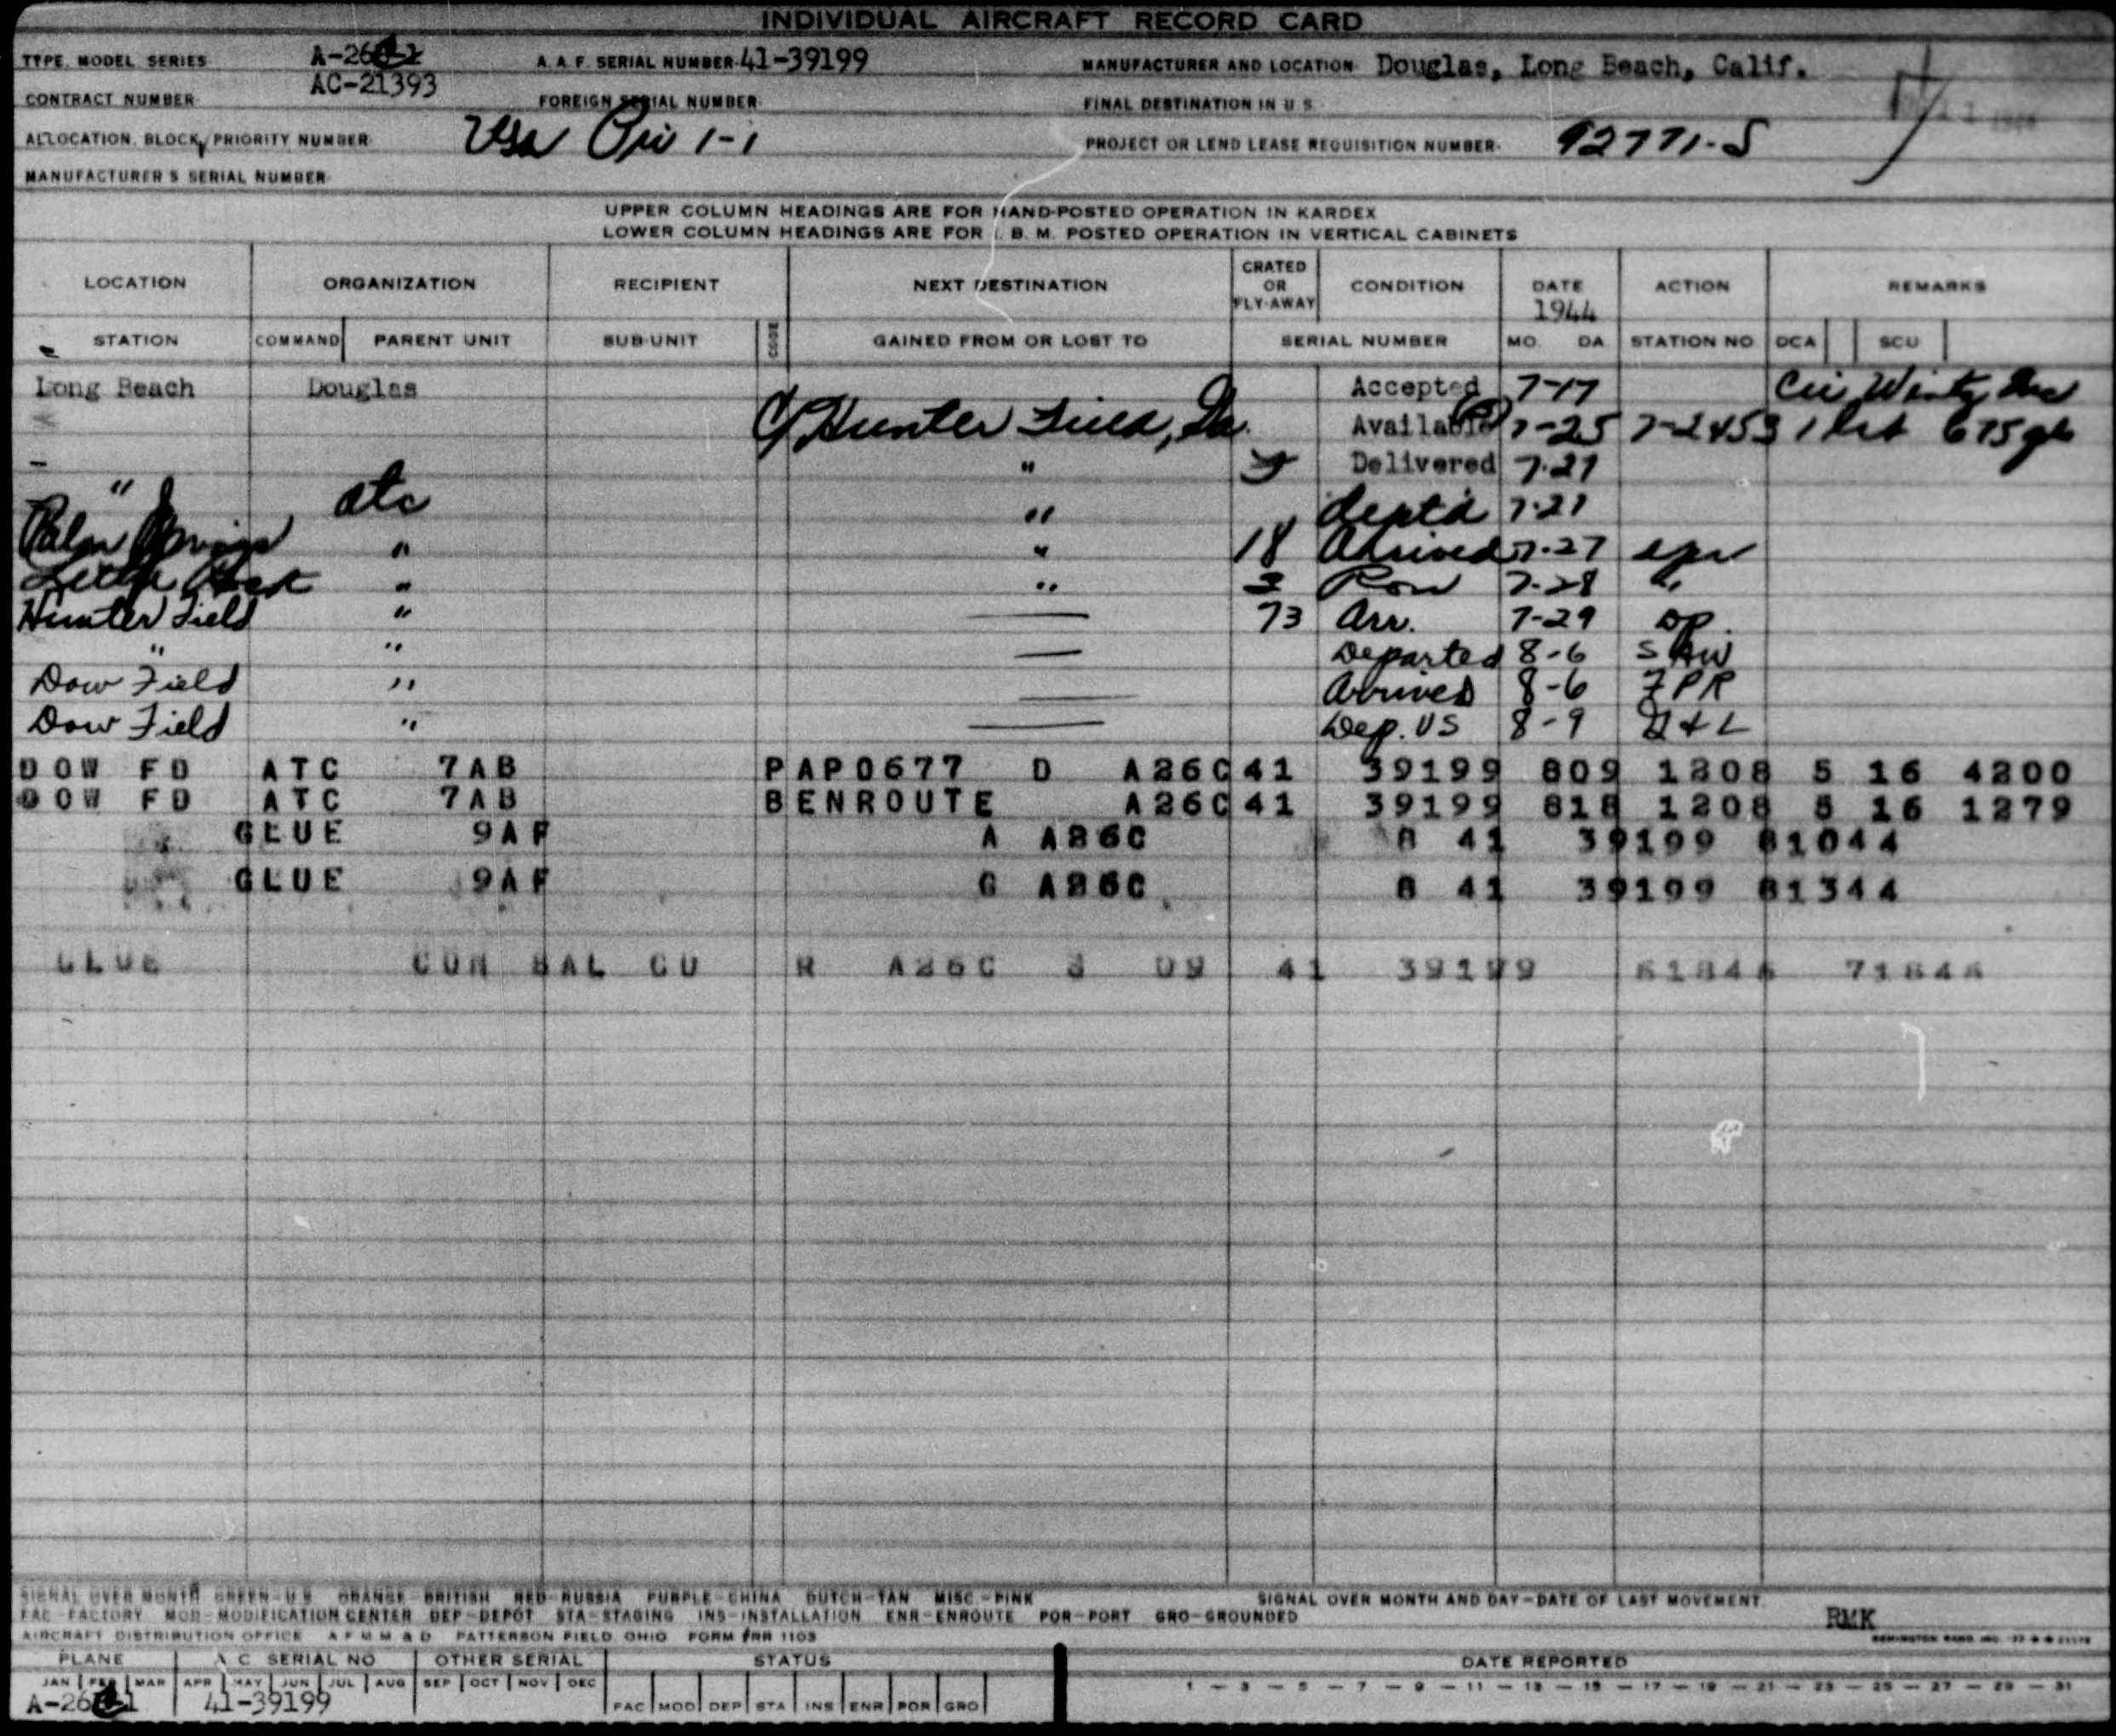 INDIVIDUAL AIRCRAFT RECORD CARD
TYPE, MODEL SERIES A-26 A. A. F. SERIAL NUMBER 41-39199 MANUFACTURER AND LOCATION Douglas, Long Beach, Calif.
CONTRACT NUMBER AC-21393 FOREIGN SERIAL NUMBER FINAL DESTINATION IN U S
ALLOCATION, BLOCK, PRIORITY NUMBER 1-1 PROJECT OR LEND LEASE REQUISITION NUMBER 92771-S
MANUFACTURER'S SERIAL NUMBER
UPPER COLUMN HEADINGS ARE FOR HAND-POSTED OPERATION IN KARDEX
LOWER COLUMN HEADINGS ARE FOR I. B. M. POSTED OPERATION IN VERTICAL CABINETS
LOCATION ORGANIZATION RECIPIENT NEXT DESTINATION CRATED OR FLY-AWAY CONDITION DATE 1944 ACTION REMARKS
STATION COMMAND PARENT UNIT SUB-UNIT CODE GAINED FROM OR LOST TO SERIAL NUMBER MO. DA. STATION NO DCA SCU
Long Beach Douglas Accepted 7-17
Hunter Field, Ga. Available 7-25
" Delivered 7-27
" atc " 7-27
Palm Springs " " 18 Arrived 7-27
" " 3 Ron 7-28 "
Hunter Field " — 73 Arr. 7-29
" " — Departed 8-6
Dow Field " — Arrived 8-6 FPR
Dow Field " — Dep. US 8-9
DOW FD ATC 7AB PAP0677 D A26C 41 39199 809 1208 5 16 4200
DOW FD ATC 7AB BENROUTE A26C 41 39199 818 1208 5 16 1279
GLUE 9AF A A26C 8 41 39199 81044
GLUE 9AF G A26C 8 41 39199 81344
GLUE CON SAL CU R A26C 09 41 39199
SIGNAL OVER MONTH GREEN-U S ORANGE-BRITISH RED-RUSSIA PURPLE-CHINA DUTCH-TAN MISC-PINK SIGNAL OVER MONTH AND DAY-DATE OF LAST MOVEMENT.
FAC-FACTORY MOD-MODIFICATION CENTER DEP-DEPOT STA-STAGING INS-INSTALLATION ENR-ENROUTE POR-PORT GRO-GROUNDED RMK
AIRCRAFT DISTRIBUTION OFFICE PATTERSON FIELD OHIO FORM 1103
PLANE A C SERIAL NO OTHER SERIAL STATUS DATE REPORTED
JAN FEB MAR APR MAY JUN JUL AUG SEP OCT NOV DEC 1 - 3 - 5 - 7 - 9 - 11 - 13 - 15 - 17 - 19 - 21 - 23 - 25 - 27 - 29 - 31
A-26 41-39199 FAC MOD DEP STA INS ENR POR GRO